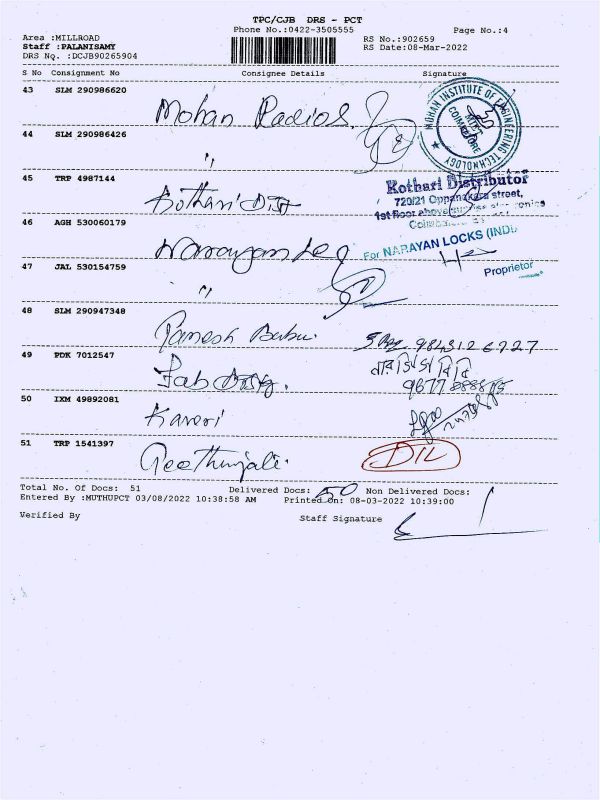 TPC/CJB DRS - PCT
Phone No.:0422-3505555
Page No.:4
Area :MILLROAD
RS No.:902659
Staff :PALANISAMY
RS Date:08-Mar-2022
DRS No. :DCJB90265904
S No Consignment No Consignee Details Signature
43 SLM 290986620
Mohan Radios
MOHAN INSTITUTE OF ENGINEERING TECHNOLOGY
COIMBATORE
44 SLM 290986426
"
45 TRP 4987144
Kothari Dist
Kothari Distributor
720/21 Oppanakara street,
1st floor above
46 AGH 530060179
Narayan Loc
For NARAYAN LOCKS (INDI
Proprietor
47 JAL 530154759
"
48 SLM 290947348
Ramesh Babu.
9843126727
49 PDK 7012547
Fab
9677
50 IXM 49892081
Kaveri
51 TRP 1541397
Geethanjali.
DIL
Total No. Of Docs: 51 Delivered Docs: 50 Non Delivered Docs: 1
Entered By :MUTHUPCT 03/08/2022 10:38:58 AM Printed On: 08-03-2022 10:39:00
Verified By Staff Signature